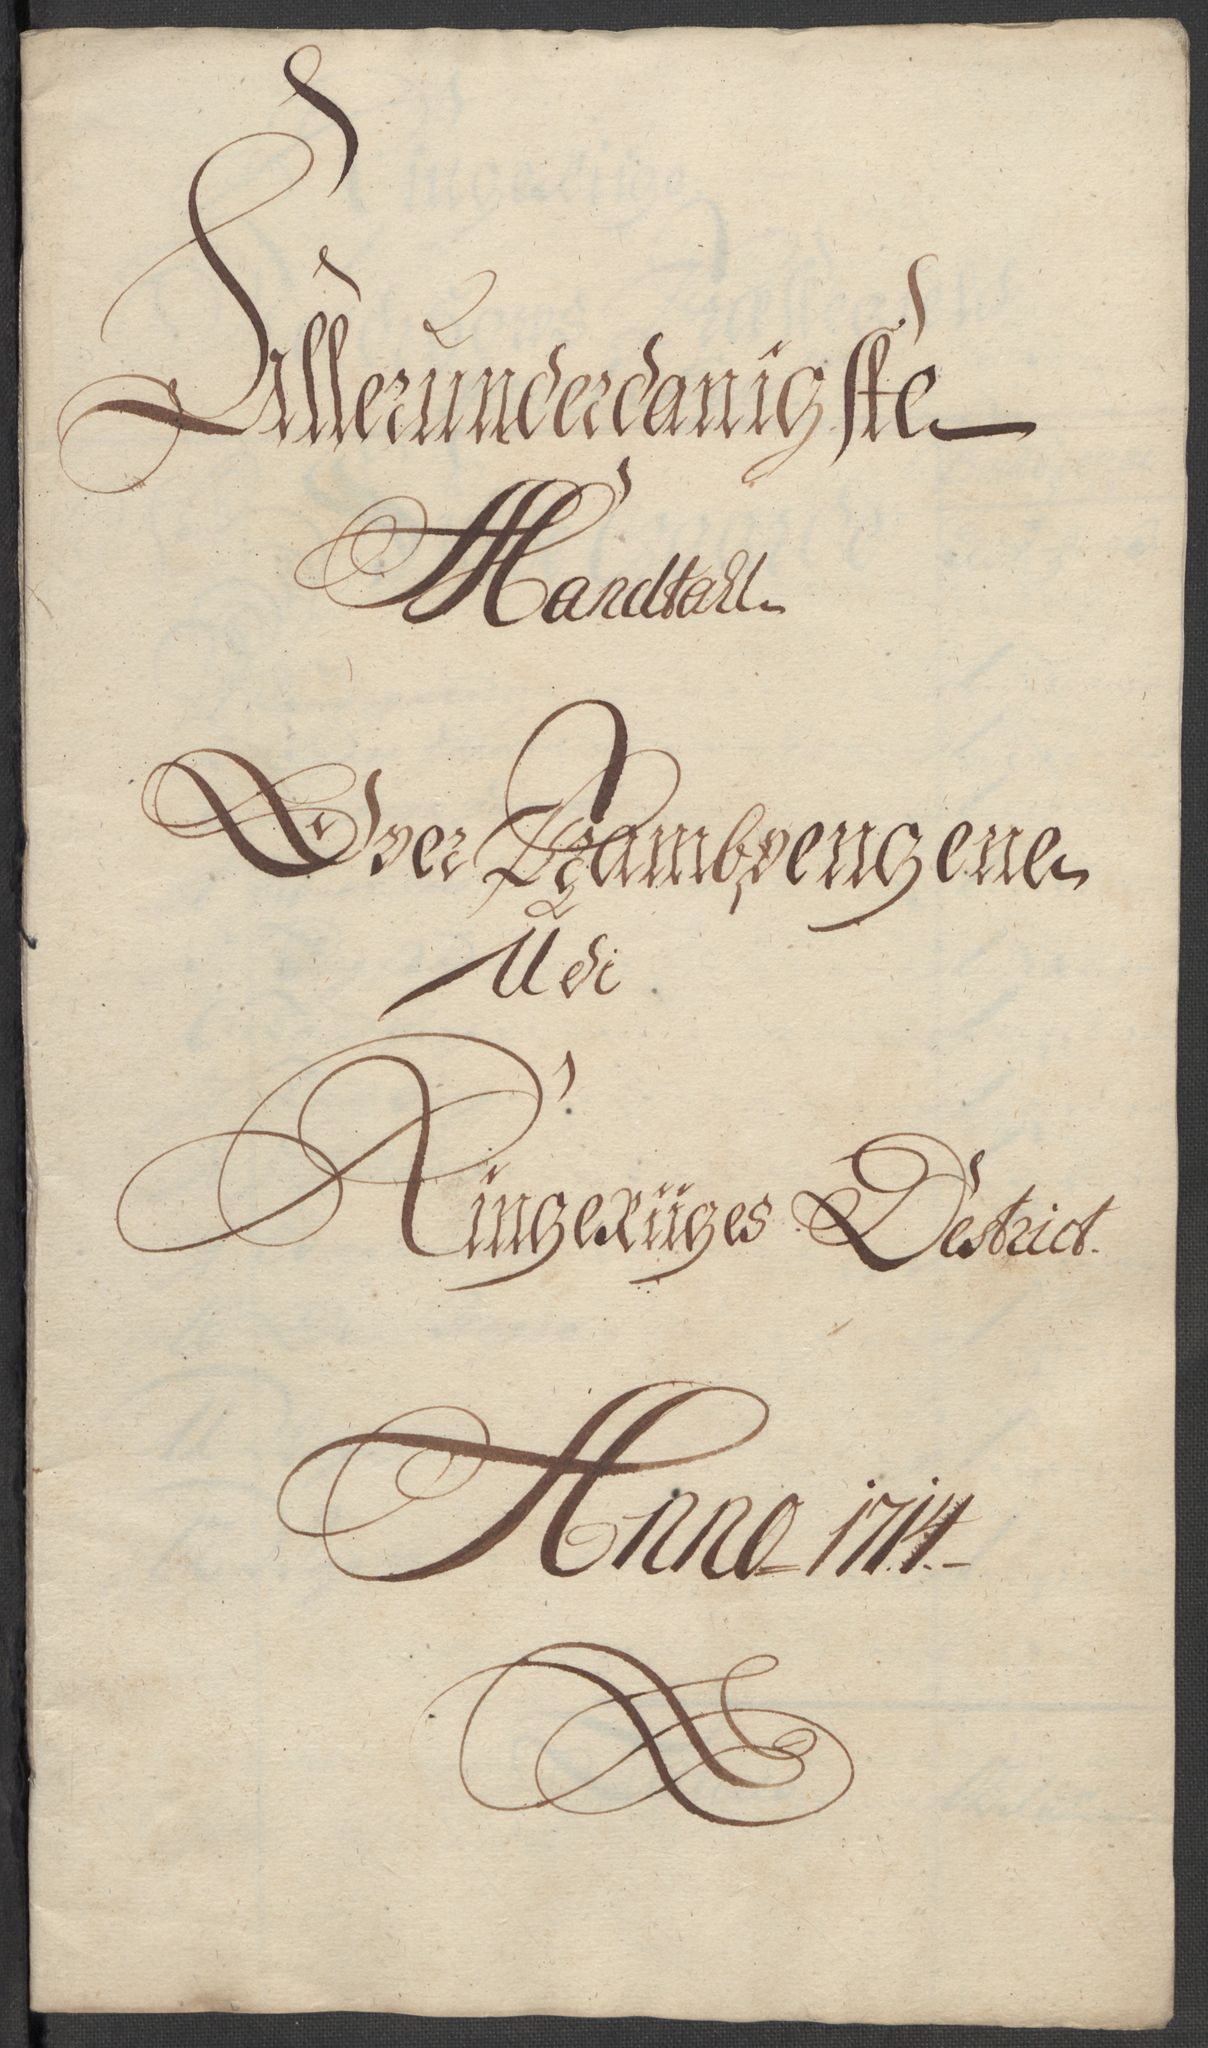 Allerunderdanigste
Mandtall
Over Krambpengene
Udi
Ringeriiges District.
Anno 1714.